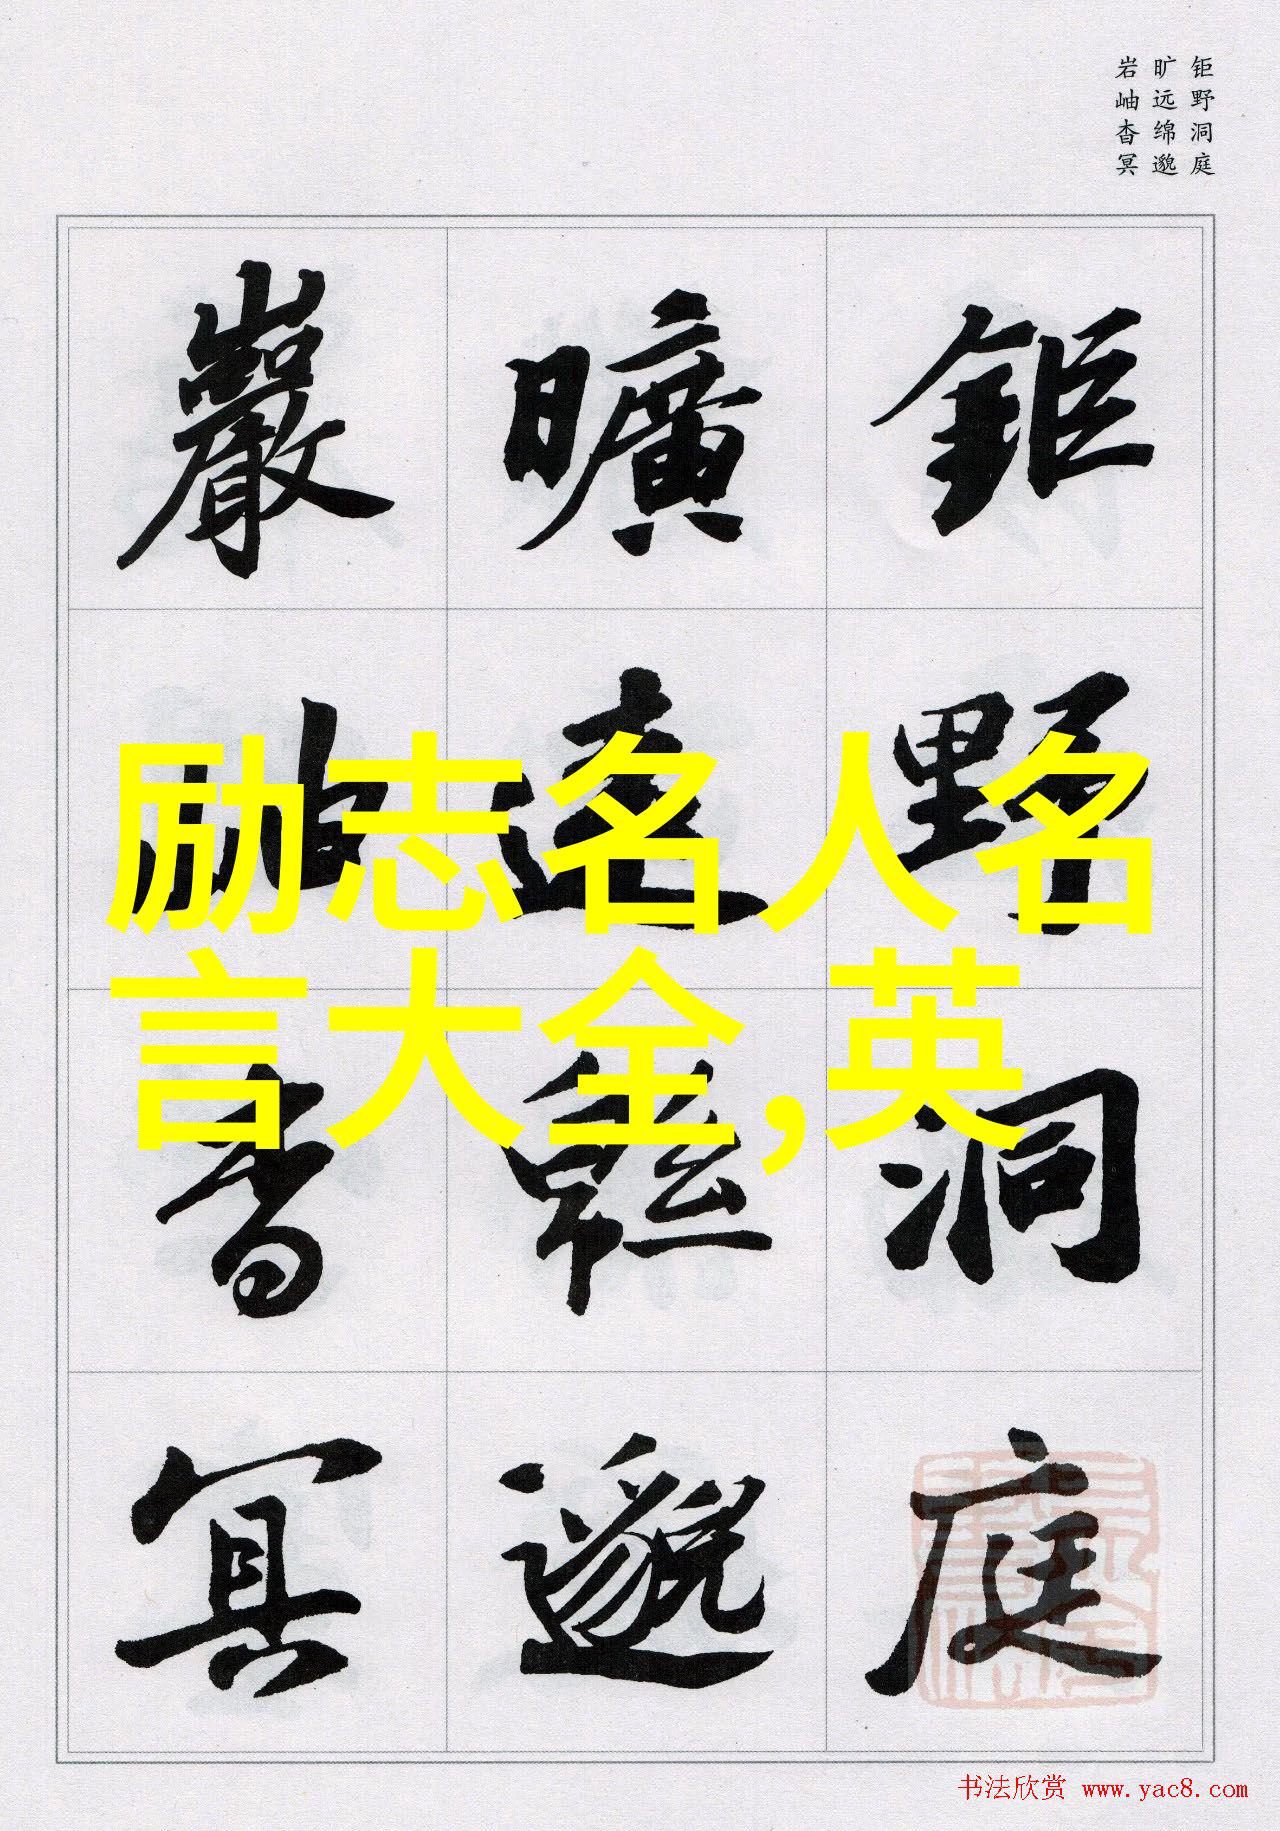 钜野洞庭
旷远绵邈
岩岫杳冥
鉅野洞庭
曠遠緜邈
巖岫杳冥
励志名人名
言大全,英
书法欣赏 www.yac8.com